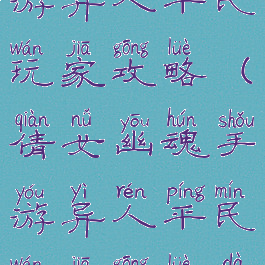 游 异 人 平 民
wán jiā gōng lüè
玩 家 攻 略 (
qiàn nǚ yōu hún shǒu
倩 女 幽 魂 手
yóu yì rén píng mín
游 异 人 平 民
wán jiā gōng lüè dà